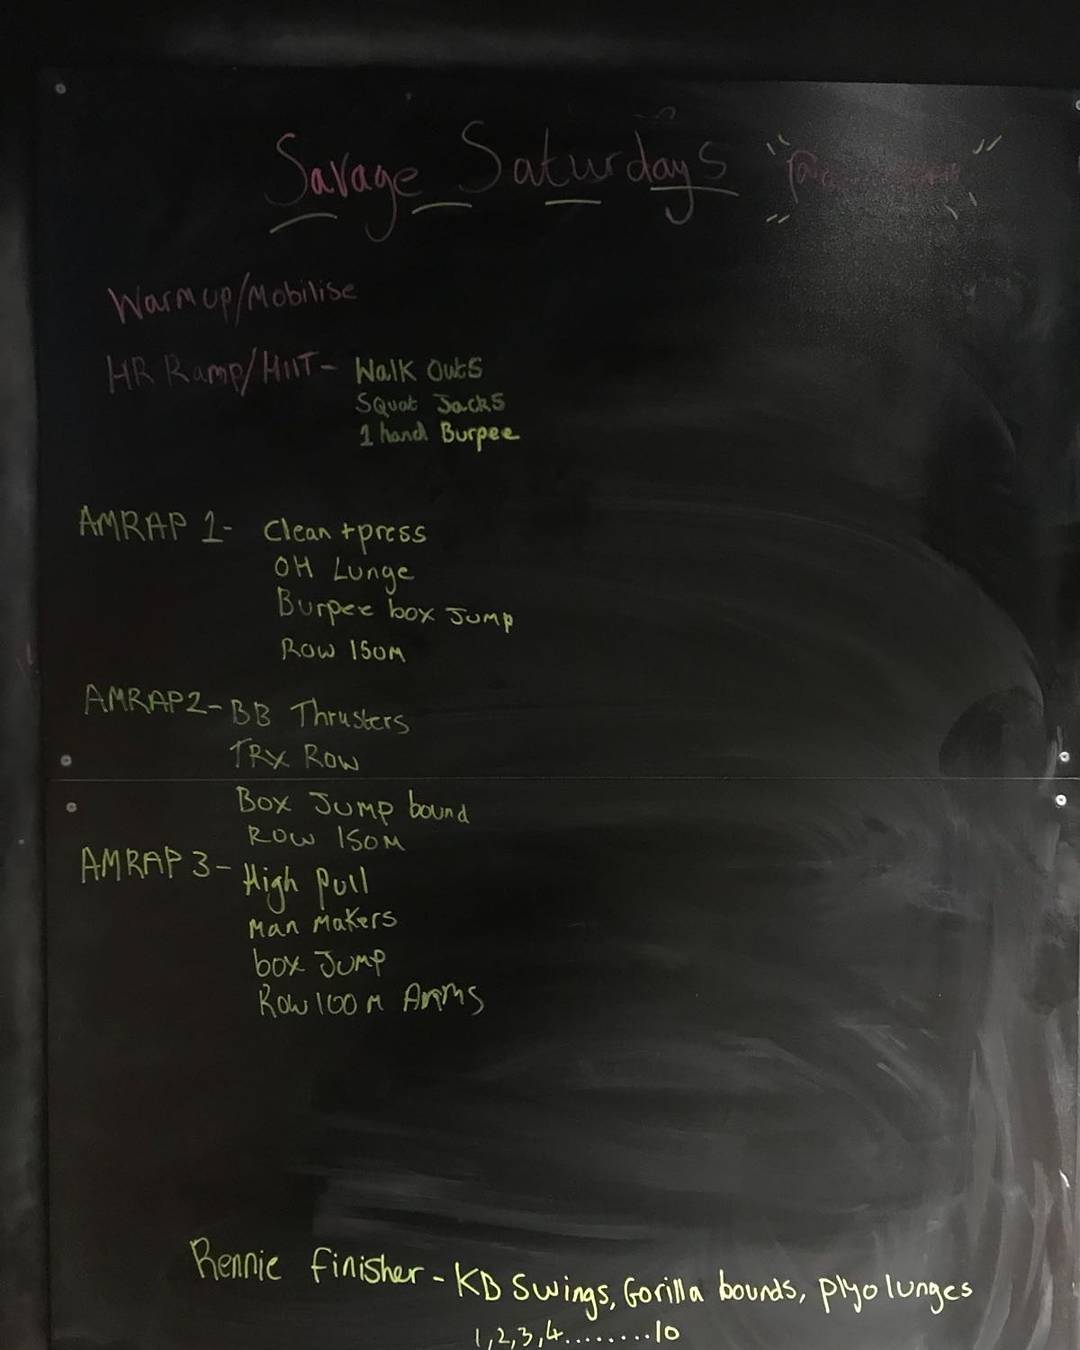 Savage Saturdays
Warm up/Mobilise
HR Ramp/HIIT- Walk Outs
Squat Jacks
1 hand Burpee
AMRAP 1- Clean + press
OH Lunge
Burpee box Jump
Row 150M
AMRAP 2- BB Thrusters
TRX Row
Box Jump bound
Row 150M
AMRAP 3- High Pull
Man Makers
box Jump
Row 100M Arms
Rennie finisher - KB Swings, Gorilla bounds, plyo lunges
1,2,3,4........10